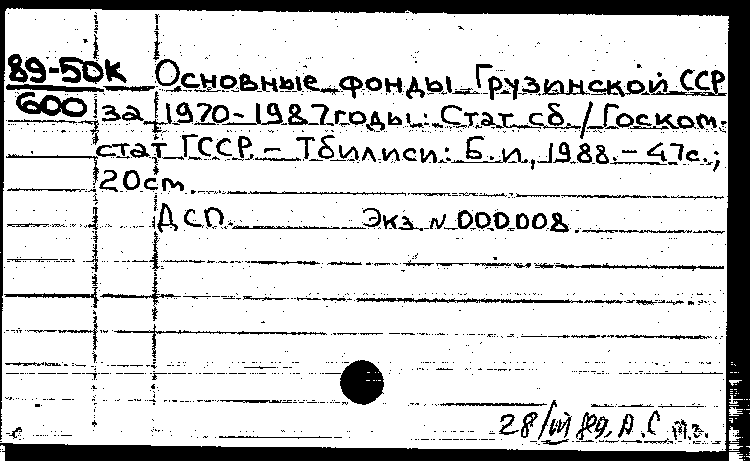 89-50К Основные фонды Грузинской ССР
600 за 1970-1987 годы: Стат сб./Госком-
стат ГССР. - Тбилиси: Б.и., 1988. - 47с.;
20см.
ДСП. Экз № 000008
28/III 89. А.С